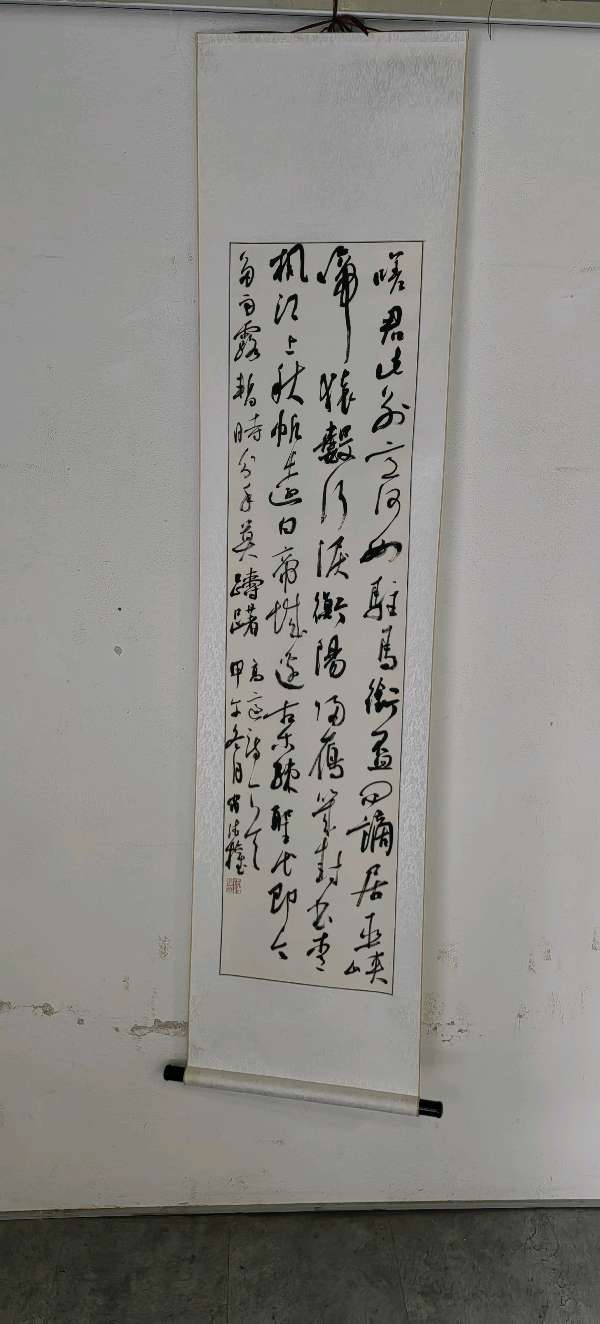 嗟君此别意何如駐馬銜盃問謫居巫峽
啼猿數行淚衡陽歸雁幾封書青
楓江上秋帆遠白帝城邊古木疎聖代即今
多雨露暫時分手莫躊躇
高適詩
甲午冬月